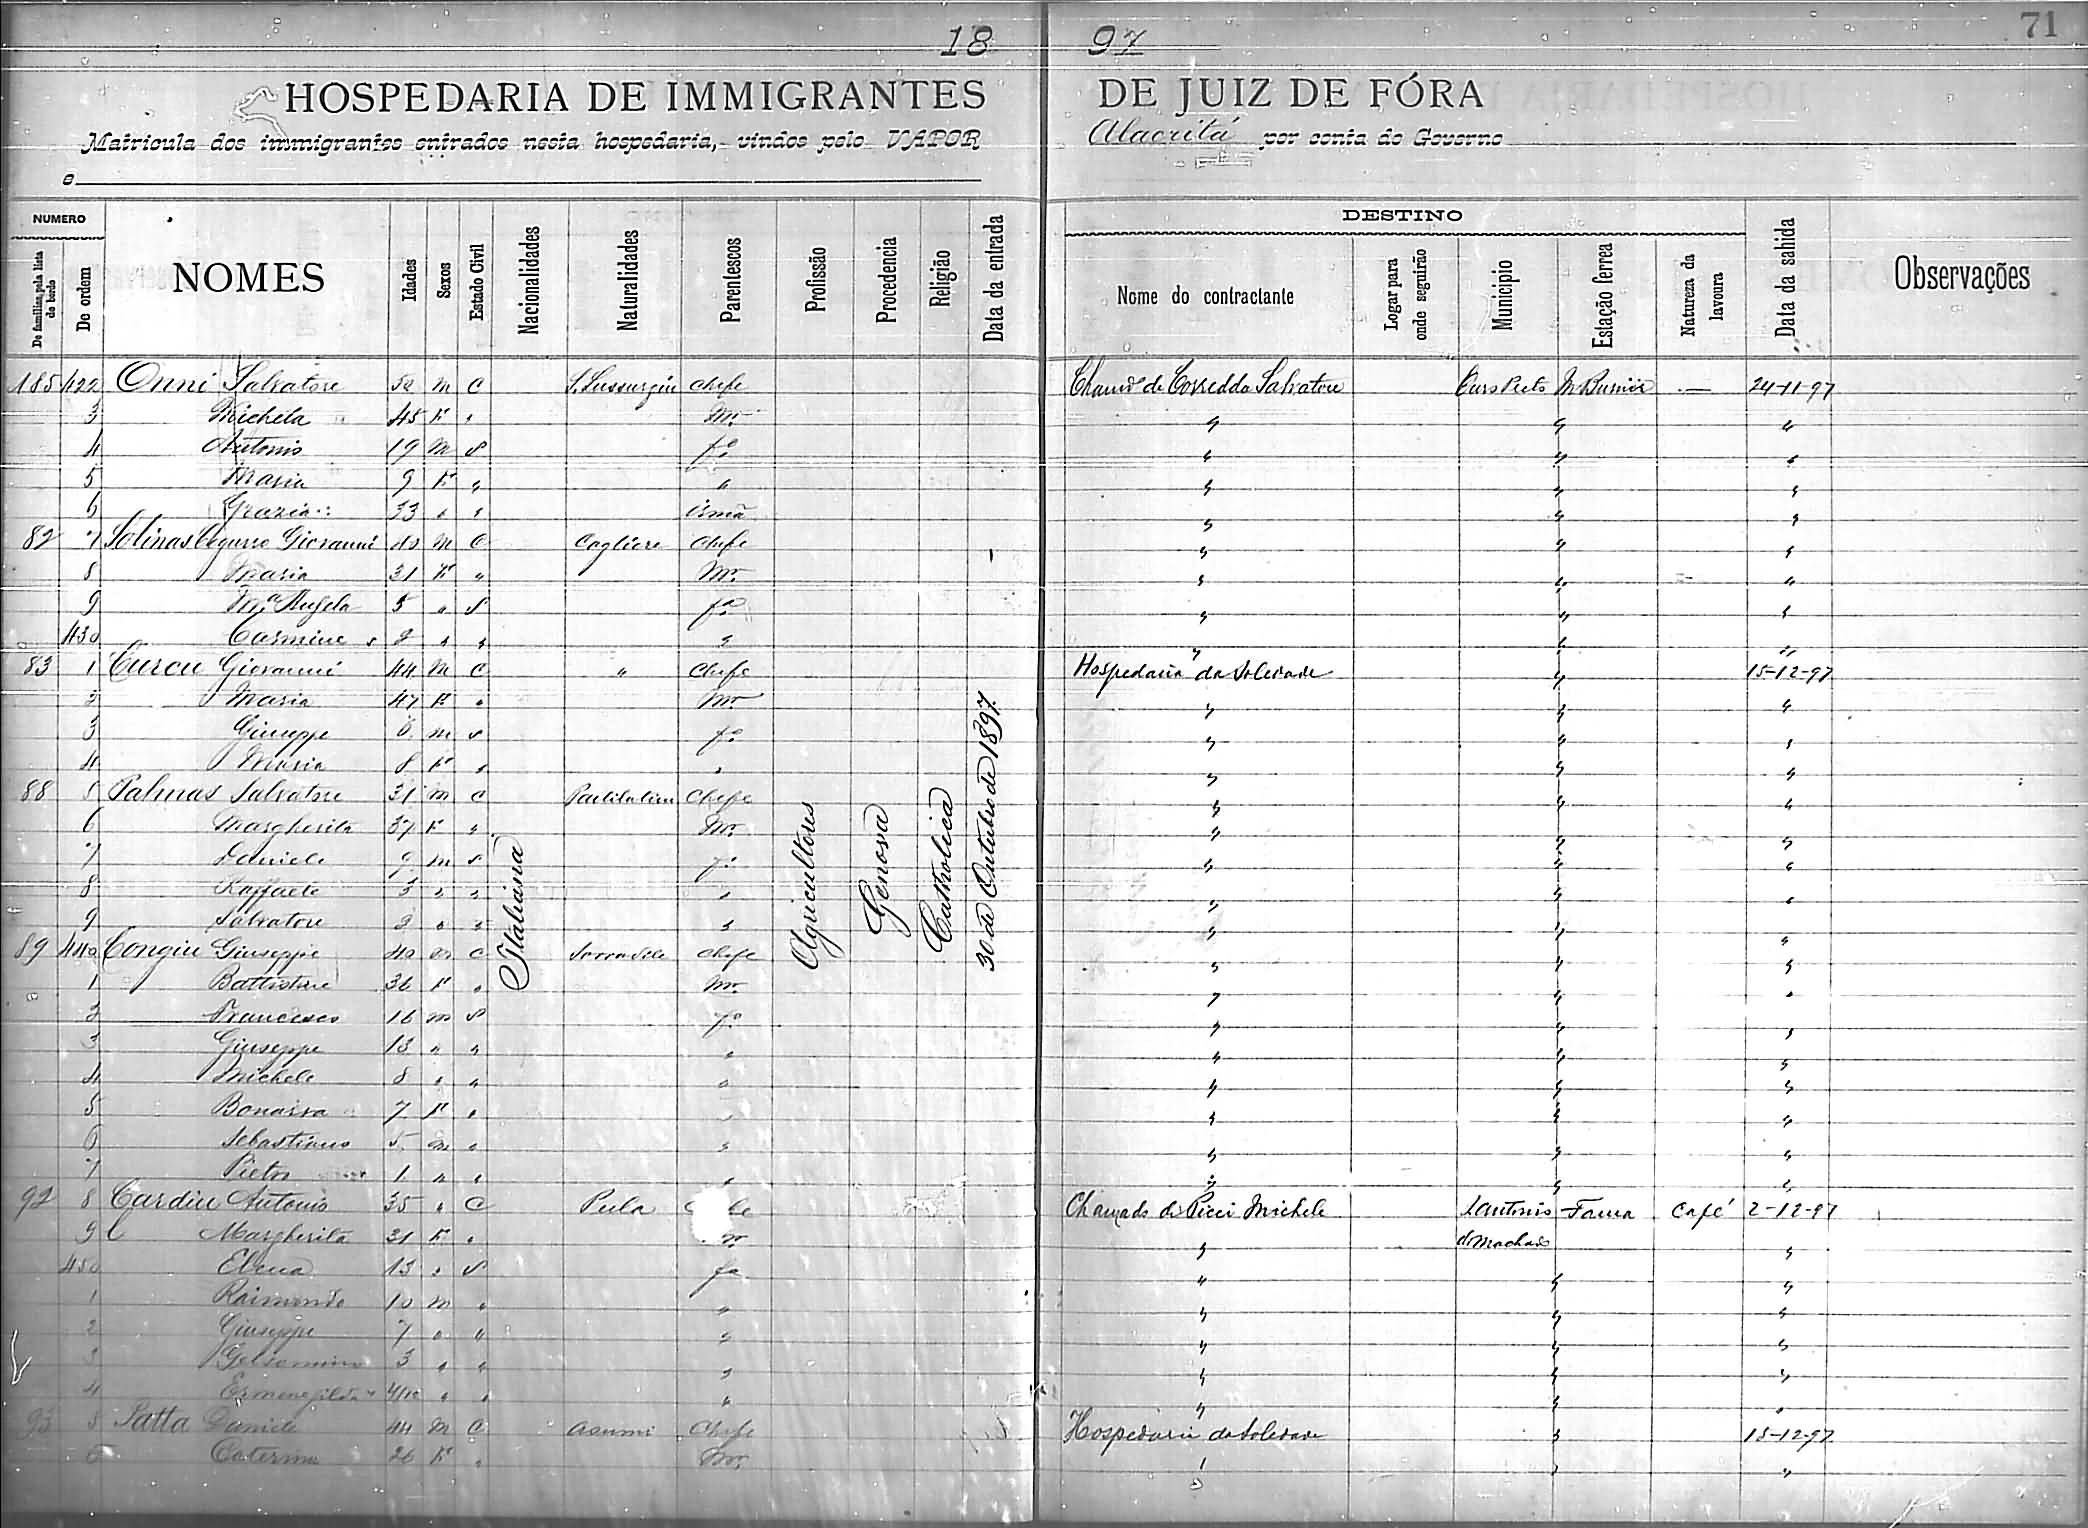 71
18 97
HOSPEDARIA DE IMMIGRANTES DE JUIZ DE FÓRA
Matricula dos immigrantes entrados nesta hospedaria, vindos pelo VAPOR Alacritá por conta do Governo
e
NUMERO
DESTINO
De familias, pela lista de bordo
De ordem
NOMES
Idades
Sexos
Estado Civil
Nacionalidades
Naturalidades
Parentescos
Profissão
Procedencia
Religião
Data da entrada
Nome do contractante
Logar para onde seguirão
Municipio
Estação ferrea
Natureza da lavoura
Data da sahida
Observações
Italiana
Agricultores
Genova
Catholica
30 de Outubro de 1897.
185 422 Onni Salvatore 52 m C S. Lussurgiu chefe Chamdo de Corredda Salvatore Ouro Preto M Burnier — 24-11-97
3 Michela 45 F " Mr. " " "
4 Antonio 19 m S fo " " "
5 Maria 9 F " " " " "
6 Grazia 33 " " irmã " " "
82 7 Solinas Giovanni 40 m C Cagliere chefe " " "
8 Maria 31 F " Mr. " " "
9 Ma Angela 5 " S fa " " "
430 Carmine 2 " " " " " "
83 1 Curcu Giovanni 44 m C " chefe Hospedaria da Soledade " 15-12-97
2 Maria 47 F " Mr " " "
3 Giuseppe m S fo " " "
4 Maria 8 F " " " " "
88 5 Palmas Salvatore 31 m C chefe " "
6 Margherita 37 F " Mr. " " "
7 Daniele 9 m S fo " " "
8 Raffaele 3 " " " " " "
9 Salvatore 2 " " " " " "
89 440 Congiu Giuseppe 40 m C Sorradile chefe " " "
1 Battistine 36 F " Mr. " " "
2 Francesco 16 m S fo " " "
3 Giuseppe 13 " " " " " "
4 Michele 8 " " " " " "
5 Bonaria 7 F " " " " "
6 Sebastiano 5 m " " " " "
7 Pietro 1 " " " " " "
92 8 Cardiu Antonio 35 " C Pula Chamado de Picci Michele S Antonio do Machado Fama Café 2-12-97
9 Margherita 31 F " " "
450 Elena 13 " S fa " " "
1 Raimondo 10 m " " " " "
2 Giuseppe 7 " " " " " "
3 Gelsomino 3 " " " " " "
4 Ermenegilda 4/12 " " " " " "
93 5 Satta Daniele 44 m C Asuni chefe Hospedaria da Soledade " 15-12-97
6 Caterina 26 F " Mr. " " "